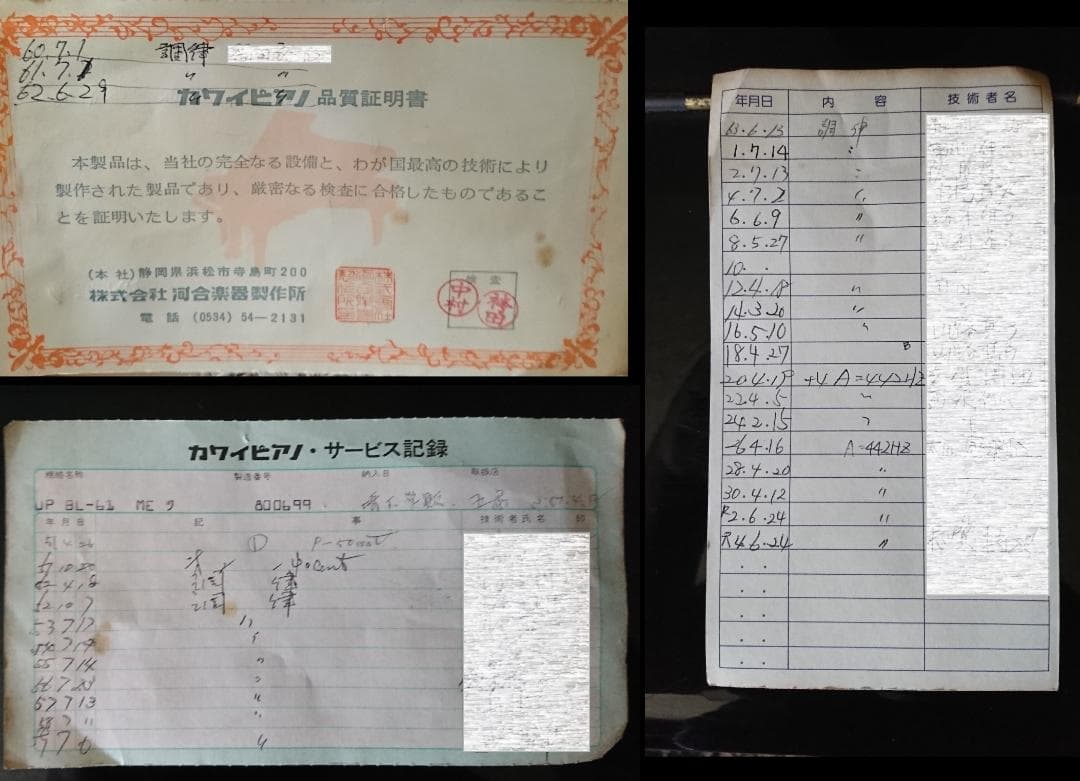 60.7.1 調律
61.7.1 〃 〃
62.6.29 〃 〃
カワイピアノ 品質証明書
本製品は、当社の完全なる設備と、わが国最高の技術により
製作された製品であり、厳密なる検査に合格したものであるこ
とを証明いたします。
(本社)静岡県浜松市寺島町200
株式会社 河合楽器製作所
電話 (0534) 54-2131
検査
中村
カワイピアノ・サービス記録
機種名称 製造番号 納入日 取扱店
UP BL-61 800699
年月日 記事 技術者氏名 印
① P-50cent
-40cent
52.4.18 調律
52.10.7 調律
53.7.17 〃
54.7.19 〃
55.7.14 〃
〃
57.7.13 〃
58.7.11 〃
〃
年月日 内容 技術者名
63.6.13 調律
1.7.14 〃
2.7.13 〃
4.7.2 〃
6.6.9 〃
8.5.27 〃
10. .
12.4.18 〃
14.3.20 〃
16.5.10 〃
18.4.27
20.4.18 +4 A=442HZ
22.4.5 〃
24.2.15 〃
A=442HZ
28.4.20 〃
30.4.12 〃
R2.6.24 〃
R4.6.24 〃